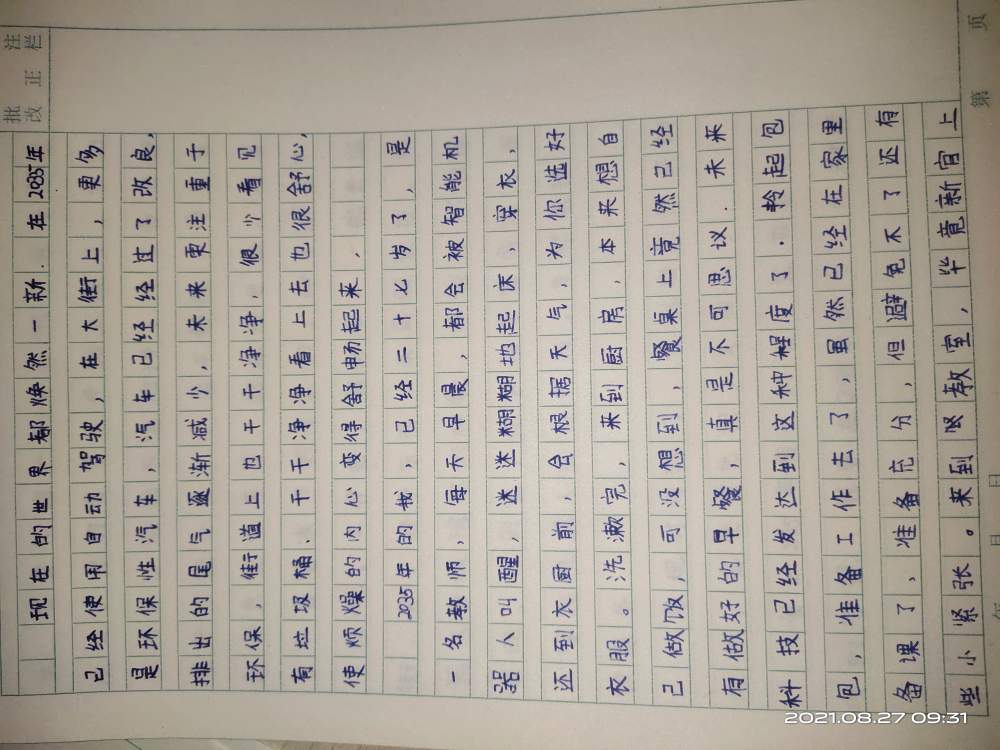 批改
注正栏
现在的世界都焕然一新.在2035年
已经使用自动驾驶,在大街上,更多
是环保性汽车,汽车已经经过了改良,
排出的尾气逐渐减少,未来更注重于
环保,街道上也干干净净,很少看见
有垃圾桶.干干净净看上去也很舒心,
使烦燥的内心变得舒畅起来.
2035年的我,已经二十七岁了,是
一名教师,每天早晨,都会被智能机
器人叫醒,迷迷糊糊地起床,穿衣,
还到衣厨前,会根据天气,为你选好
衣服。洗漱完,来到厨房,本来想自
己做饭,可没想到,餐桌上竟然已经
有做好的早餐,真是不可思议.未来
科技已经发达到这种程度了.拎起包
包,准备工作去了,虽然已经在家里
备课了,准备充分,但避免不了还有
些小紧张。来到教室,毕竟新官上
第 页
年 月 日
2021.08.27 09:31